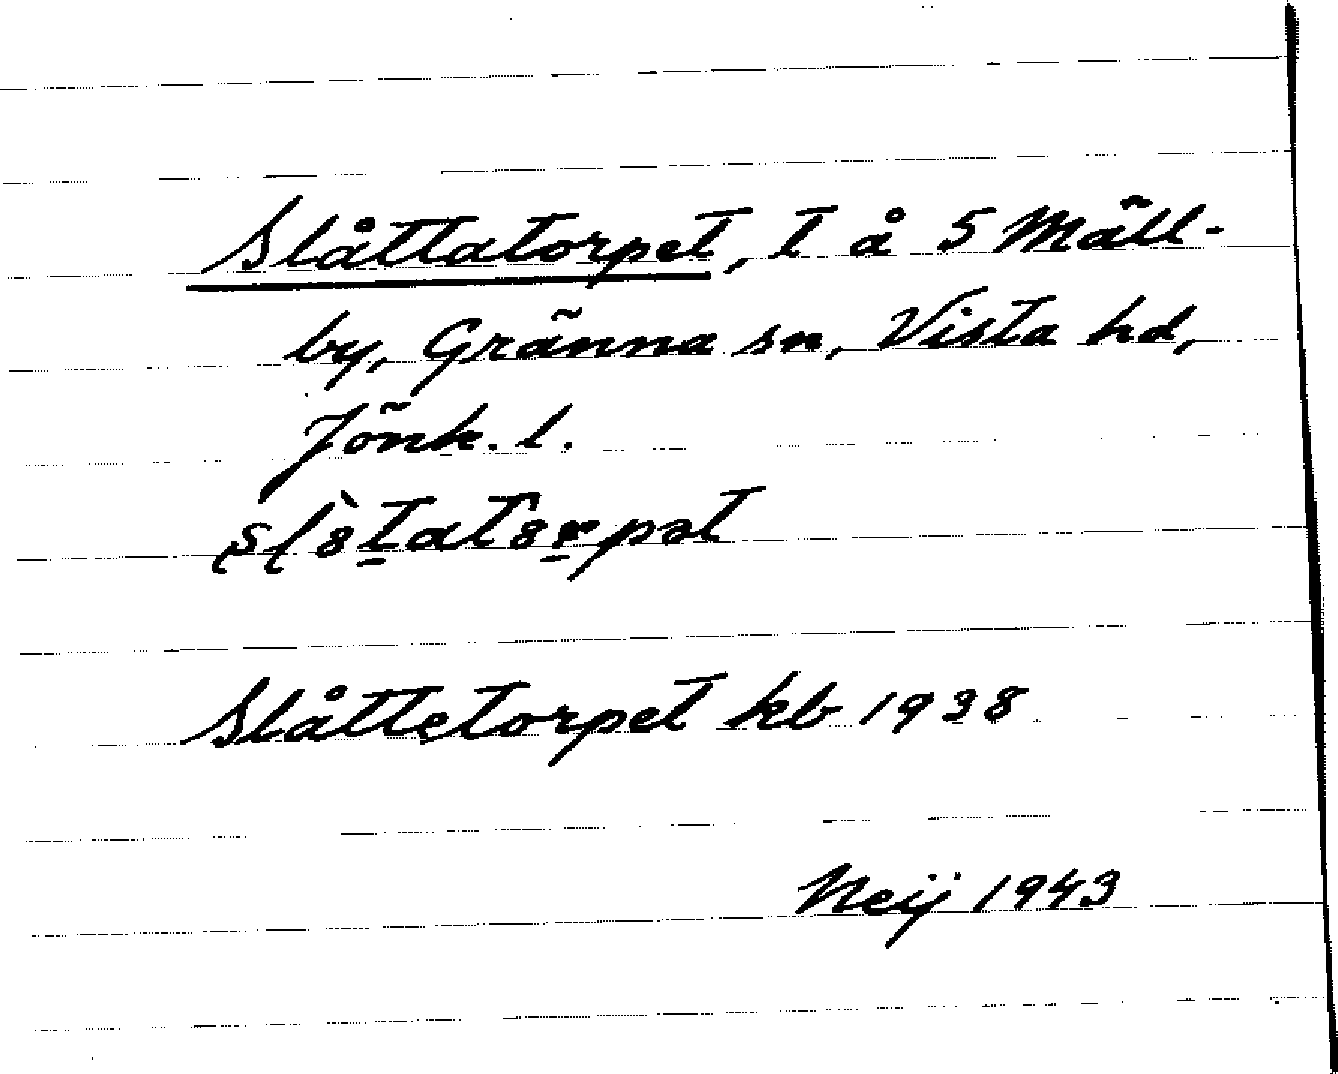 Slåttatorpet, t å 5 Mäll-
by, Gränna sn, Vista hd,
Jönk. l.
Slåttetorpet kb 1938
Neij 1943